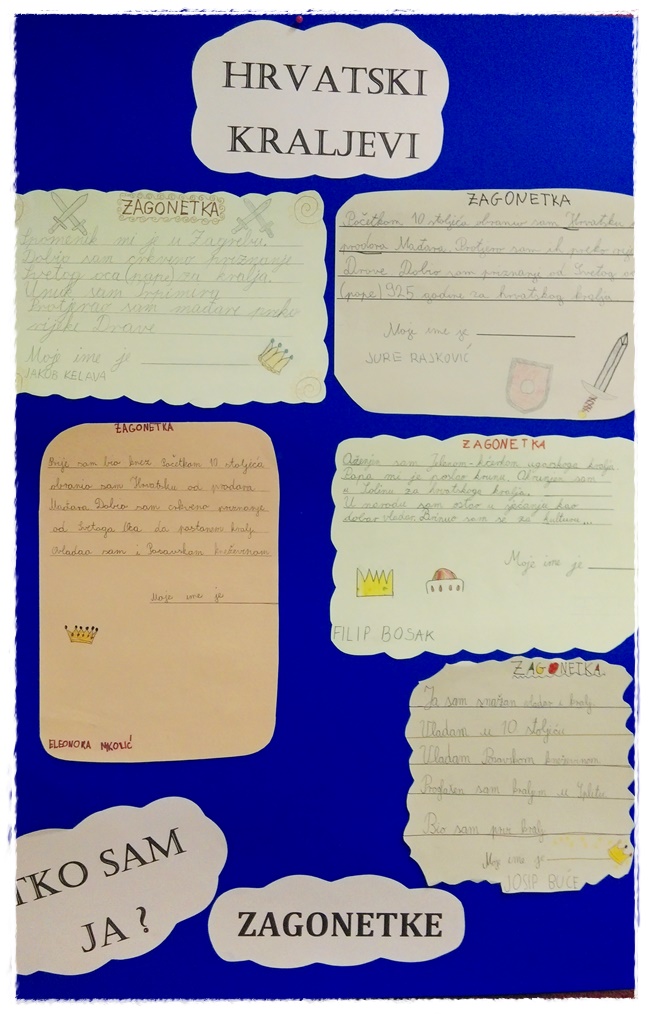 HRVATSKI
KRALJEVI
ZAGONETKA
Spomenik mi je u Zagrebu.
Dobio sam crkveno priznanje
Svetog oca (pape) za kralja.
Unuk sam Trpimira
Protjerao sam mađare preko
rijeke Drave
Moje ime je
JAKOB KELAVA
ZAGONETKA
Početkom 10 stoljeća obranio sam Hrvatsku
prodora Mađara. Protjerao sam ih preko
Drave Dobio sam priznanje od Svetog
(pape) 925 godine za hrvatskog kralja
Moje ime je
JURE RAJKOVIĆ
ZAGONETKA
Prije sam bio knez Početkom 10 stoljeća
obranio sam Hrvatsku od prodora
Mađara Dobio sam crkveno priznanje
od Svetoga Oca da postanem kralj
Vladao sam i Posavskom kneževinom
Moje ime je
ELEONORA NIKOLIĆ
ZAGONETKA
Oženjen sam Jelenom-kćerkom ugarskoga kralja
Papa mi je poslao krunu. Okrunjen sam
u Solinu za hrvatskoga kralja.
U narodu sam ostao u sjećanju kao
dobar vladar. Brinuo sam se za kulturu...
Moje ime je
FILIP BOSAK
ZAGONETKA
Ja sam snažan vladar i kralj.
Vladam u 10 stoljeću
Vladam Posavskom kneževinom
Proglašen sam kraljem u Splitu
Bio sam prvi kralj
Moje ime je
JOSIP BUČE
TKO SAM
JA ?
ZAGONETKE